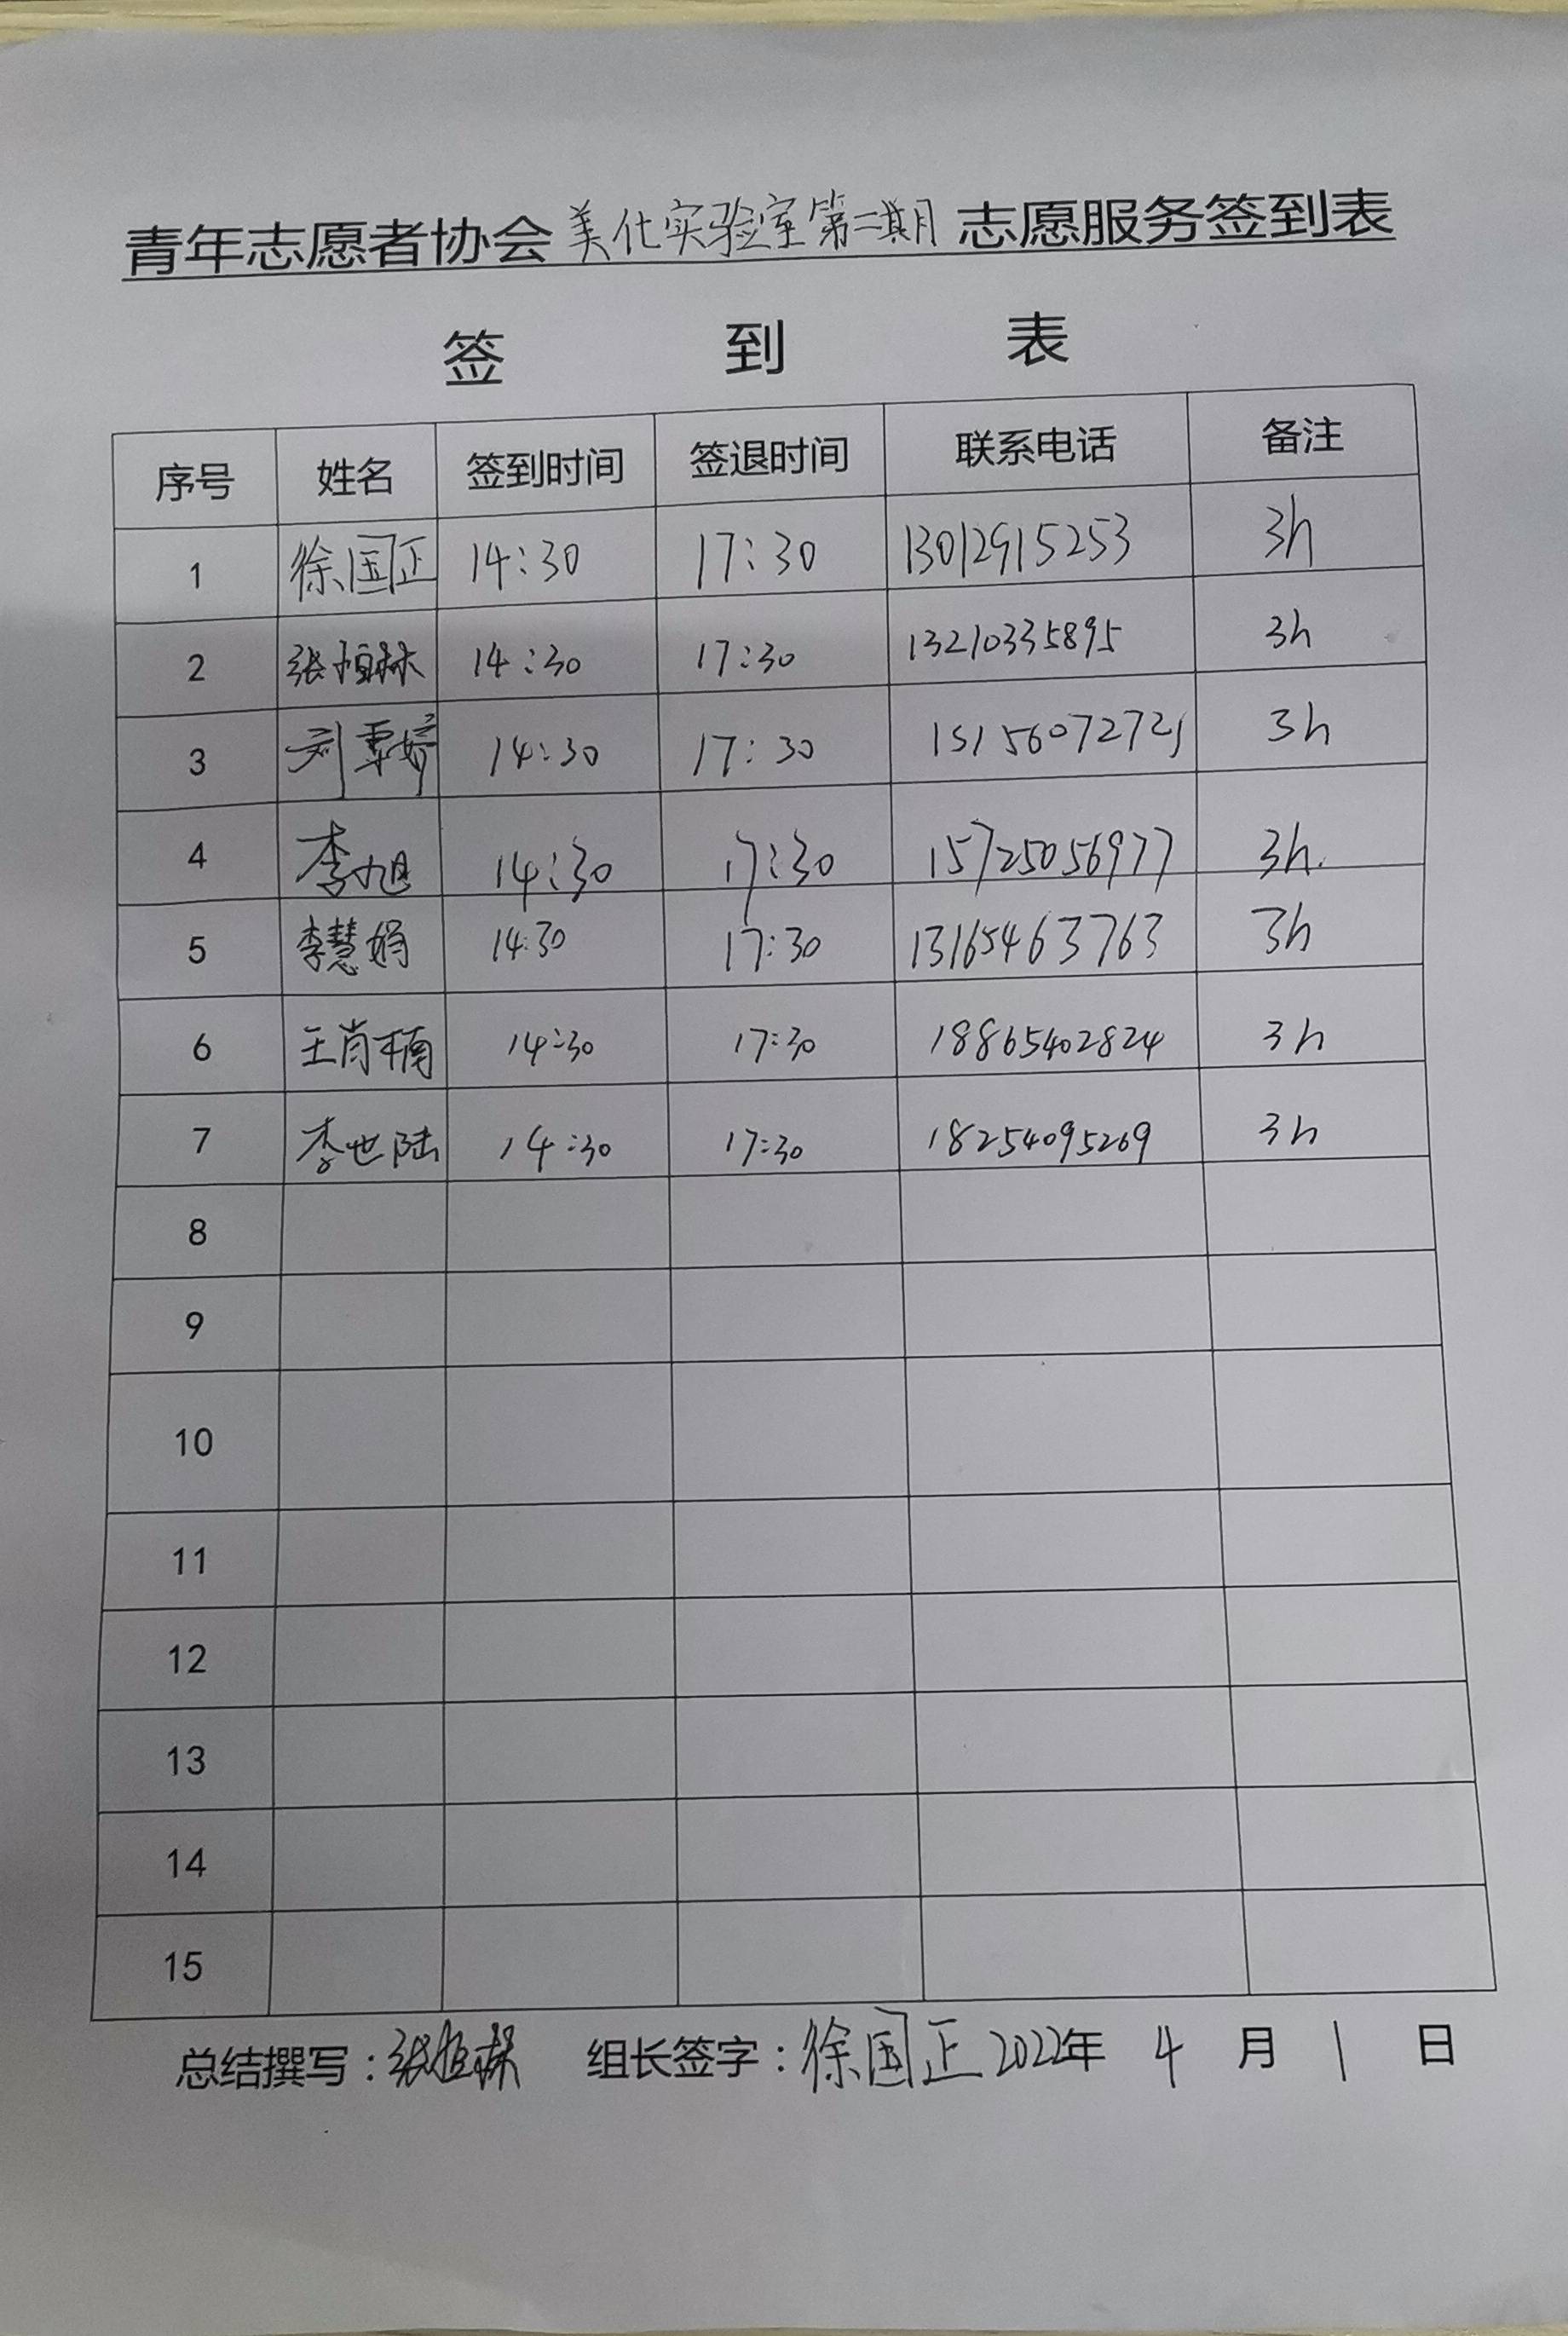 青年志愿者协会美化实验室第二期志愿服务签到表
签 到 表
序号 姓名 签到时间 签退时间 联系电话 备注
1 徐国正 14:30 17:30 13012915253 3h
2 张恒林 14:30 17:30 13210335895 3h
3 刘覃婷 14:30 17:30 15156072721 3h
4 李旭 14:30 17:30 15725056977 3h.
5 李慧娟 14:30 17:30 13165463763 3h
6 王肖楠 14:30 17:30 18865402824 3h
7 李世陆 14:30 17:30 18254095269 3h
8
9
10
11
12
13
14
15
总结撰写:张恒林 组长签字:徐国正 2022年 4 月 1 日